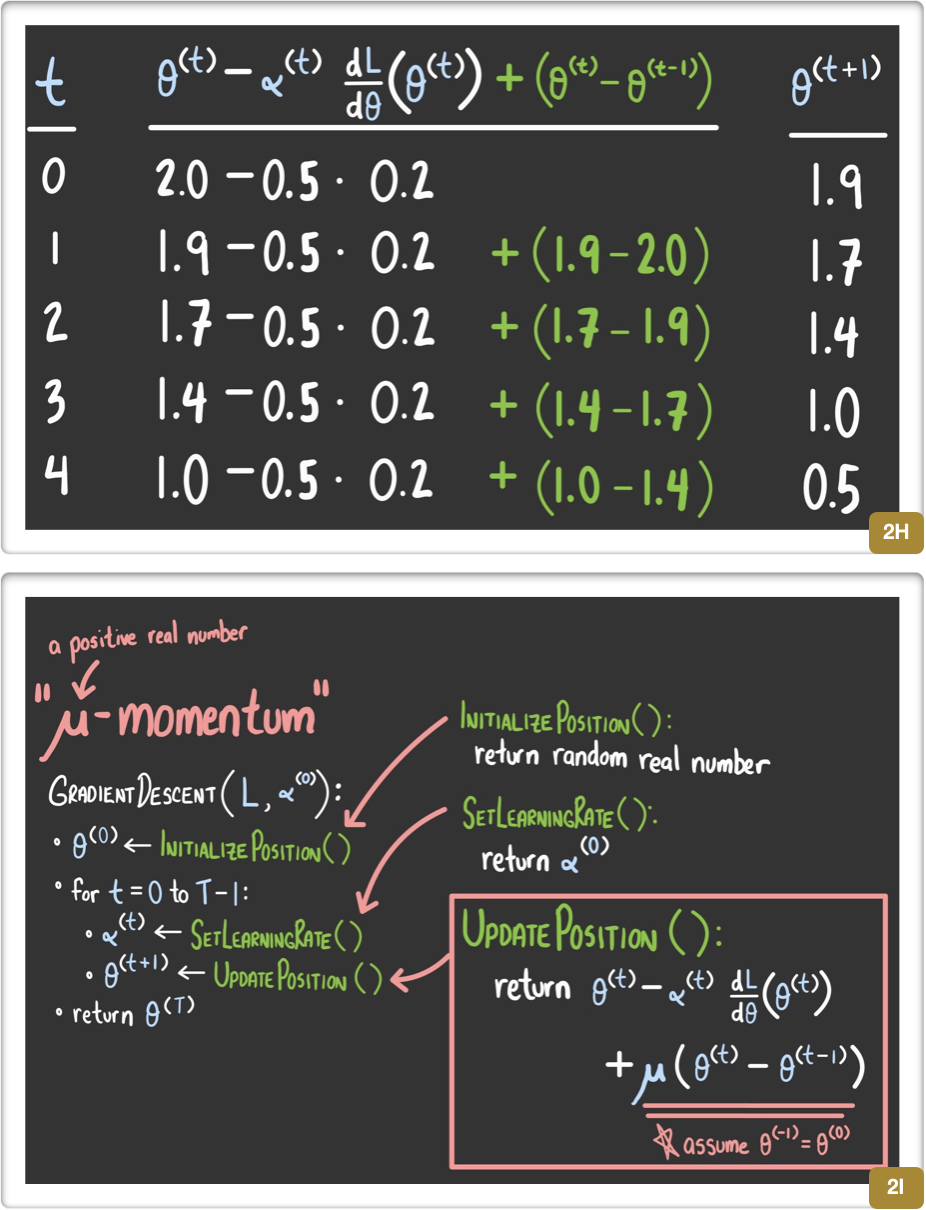 t θ^(t) − α^(t) dL/dθ (θ^(t)) + (θ^(t) − θ^(t−1)) θ^(t+1)
0 2.0 − 0.5 · 0.2 1.9
1 1.9 − 0.5 · 0.2 + (1.9 − 2.0) 1.7
2 1.7 − 0.5 · 0.2 + (1.7 − 1.9) 1.4
3 1.4 − 0.5 · 0.2 + (1.4 − 1.7) 1.0
4 1.0 − 0.5 · 0.2 + (1.0 − 1.4) 0.5
2H
a positive real number
"μ-momentum"
GRADIENTDESCENT(L, α^(0)):
• θ^(0) ← INITIALIZEPOSITION()
• for t=0 to T−1:
• α^(t) ← SETLEARNINGRATE()
• θ^(t+1) ← UPDATEPOSITION()
• return θ^(T)
INITIALIZEPOSITION():
return random real number
SETLEARNINGRATE():
return α^(0)
UPDATEPOSITION():
return θ^(t) − α^(t) dL/dθ (θ^(t))
+ μ(θ^(t) − θ^(t−1))
☆ assume θ^(−1) = θ^(0)
2I